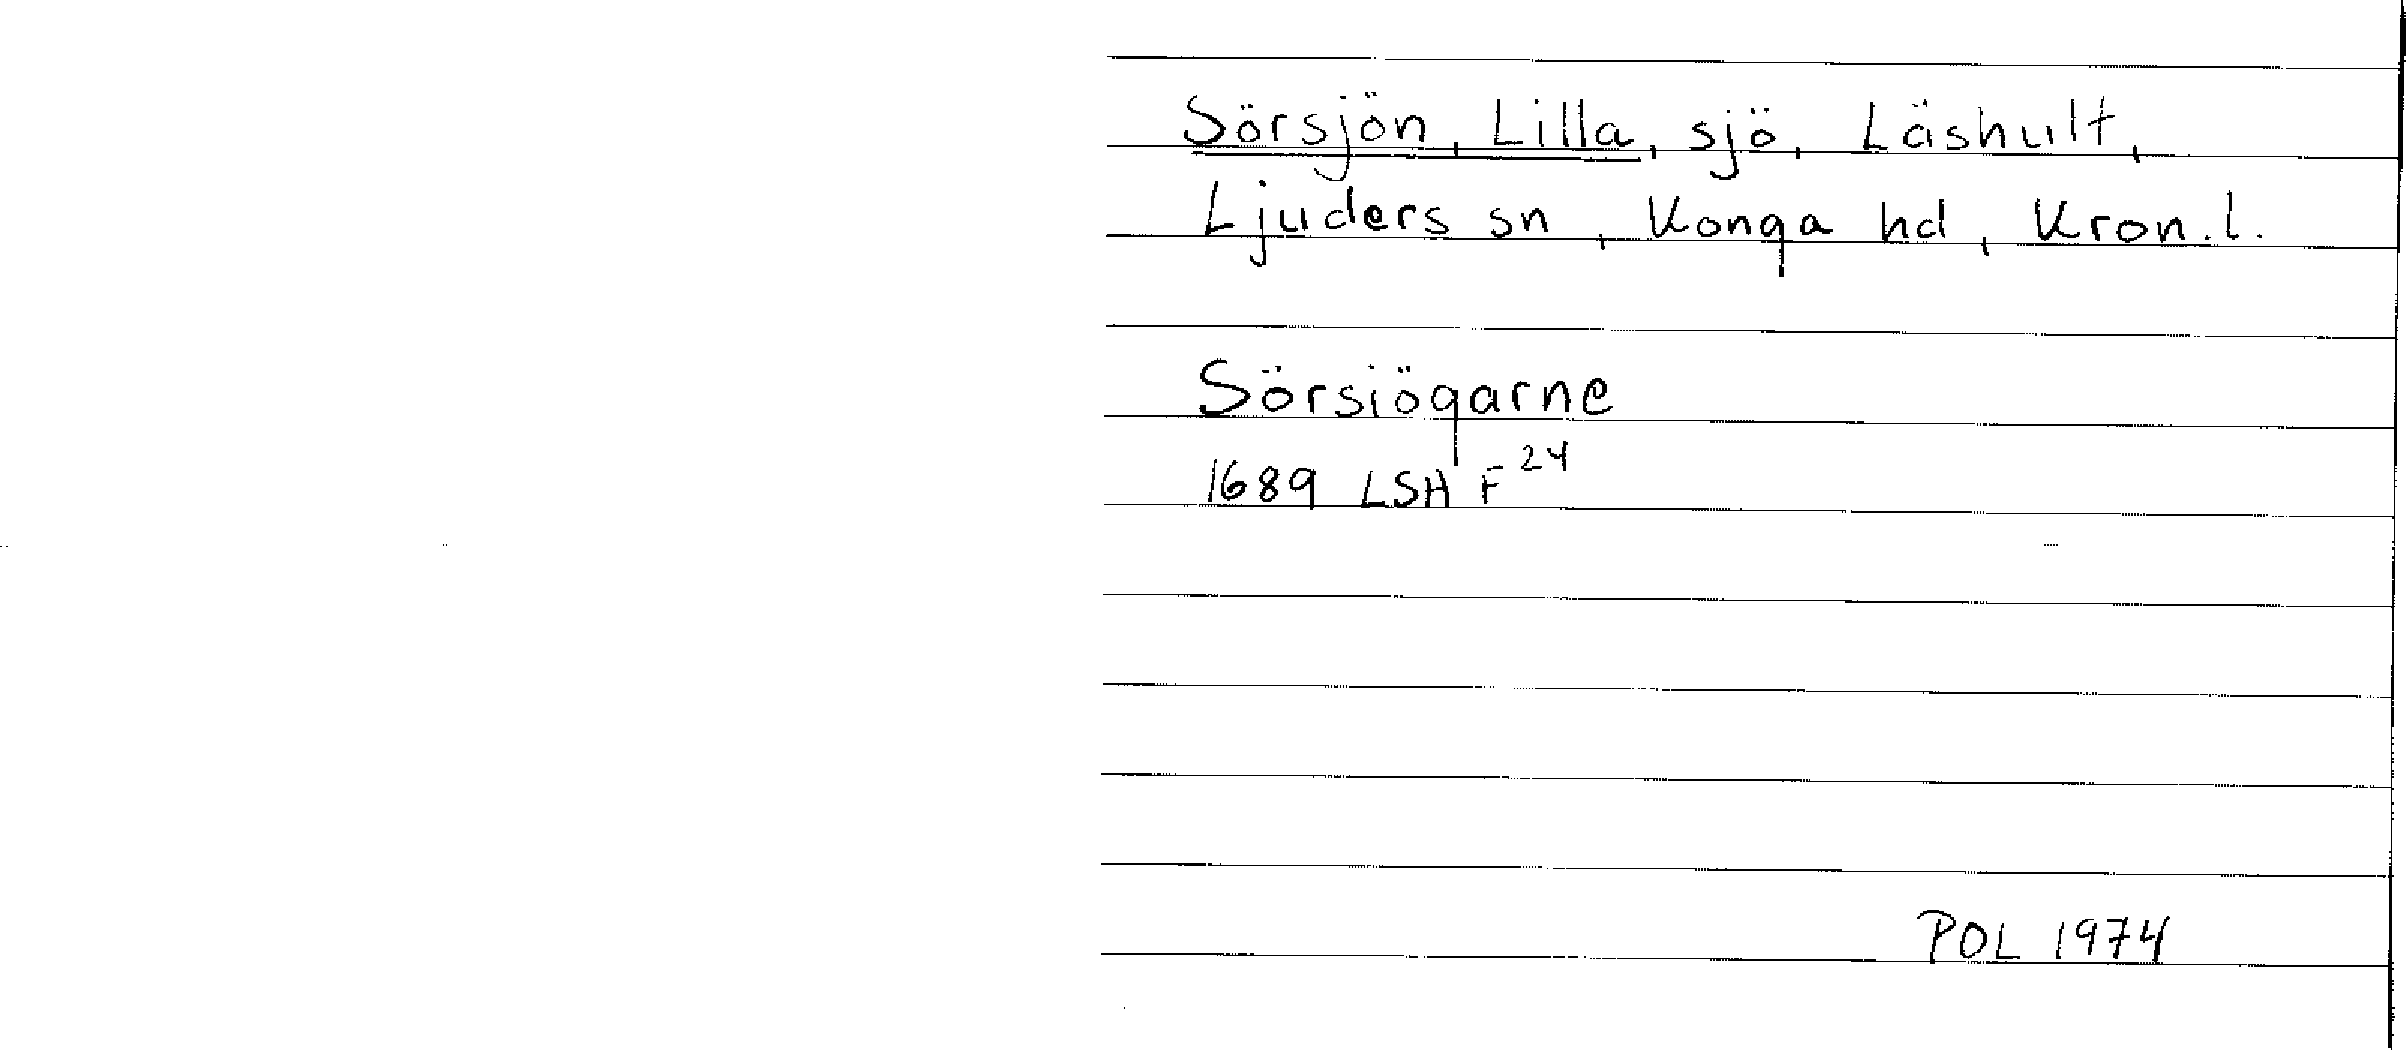 Sörsjön, Lilla, sjö, Läshult,
Ljuders sn, Konga hd, Kron.l.
Sörsiögarne
1689 LSH F 24
POL 1974